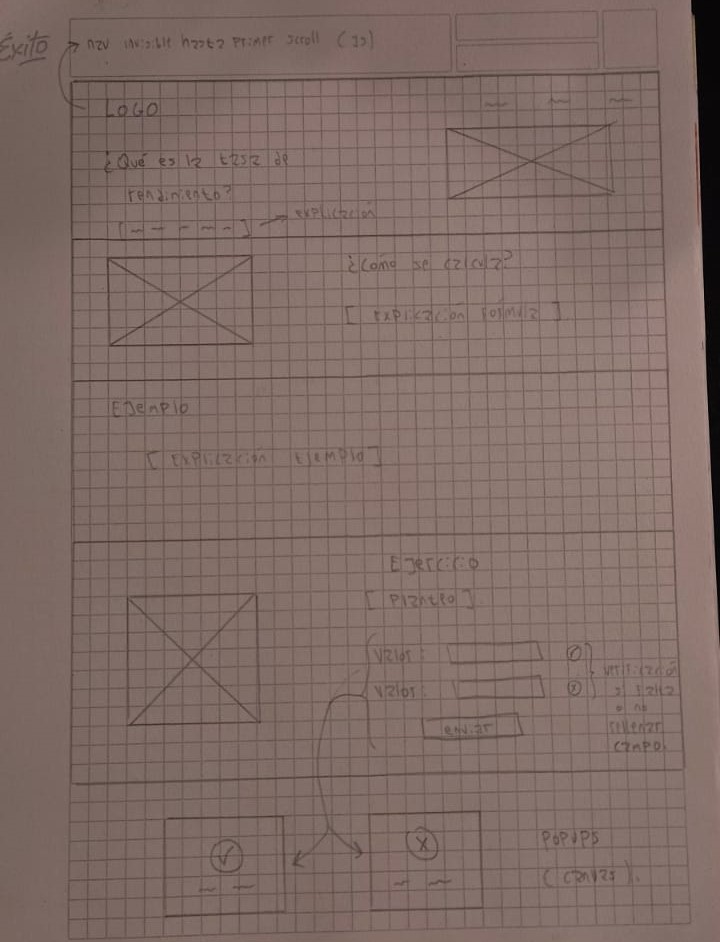 Éxito
nav invisible hasta primer scroll (js)
LOGO
¿Qué es la tasa de
rendimiento?
explicación
¿Cómo se calcula?
[ explicación fórmula ]
Ejemplo
[ Explicación ejemplo ]
Ejercicio
[ Planteo ]
Valor:
Valor:
verificación
si falta
o no
rellenar
campo.
enviar
Popups
(canvas).